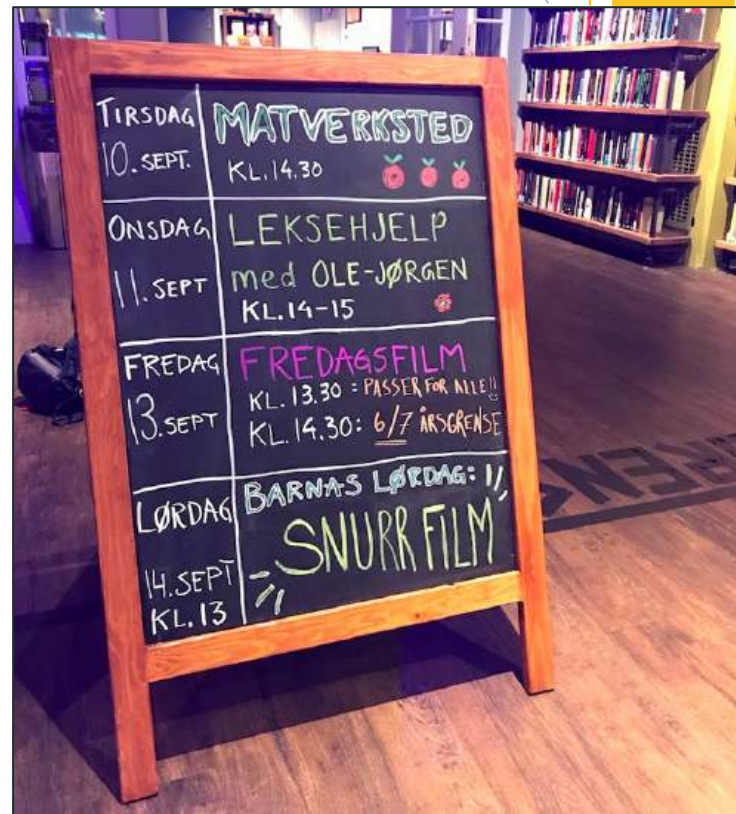 TIRSDAG
10. SEPT.
MATVERKSTED
KL.14.30
ONSDAG
11. SEPT
LEKSEHJELP
med OLE-JØRGEN
KL.14-15
FREDAG
13. SEPT
FREDAGSFILM
KL. 13.30 : PASSER FOR ALLE!!
KL. 14.30: 6/7 ÅRSGRENSE
LØRDAG
14. SEPT
KL. 13
BARNAS LØRDAG:
SNURR FILM